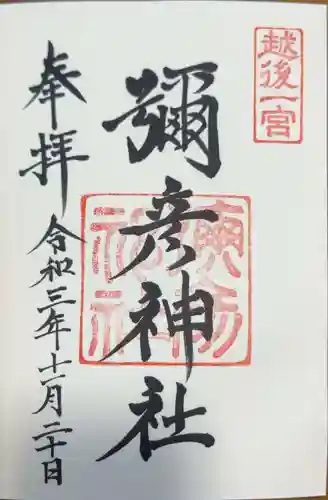 越後一宮
彌彦神社
奉拝
令和三年十一月二十日